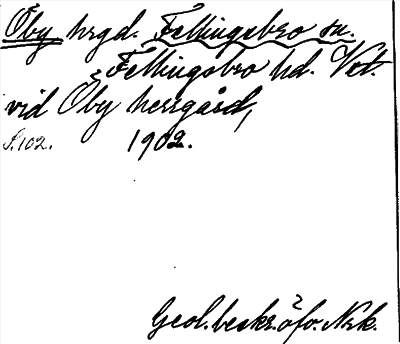 Öby hrgd. Fellingsbro sn.
Fellingsbro hd. Vstm.
vid Öby herrgård,
S. 102. 1902.
Geol. beskr. öfv. Nrk.